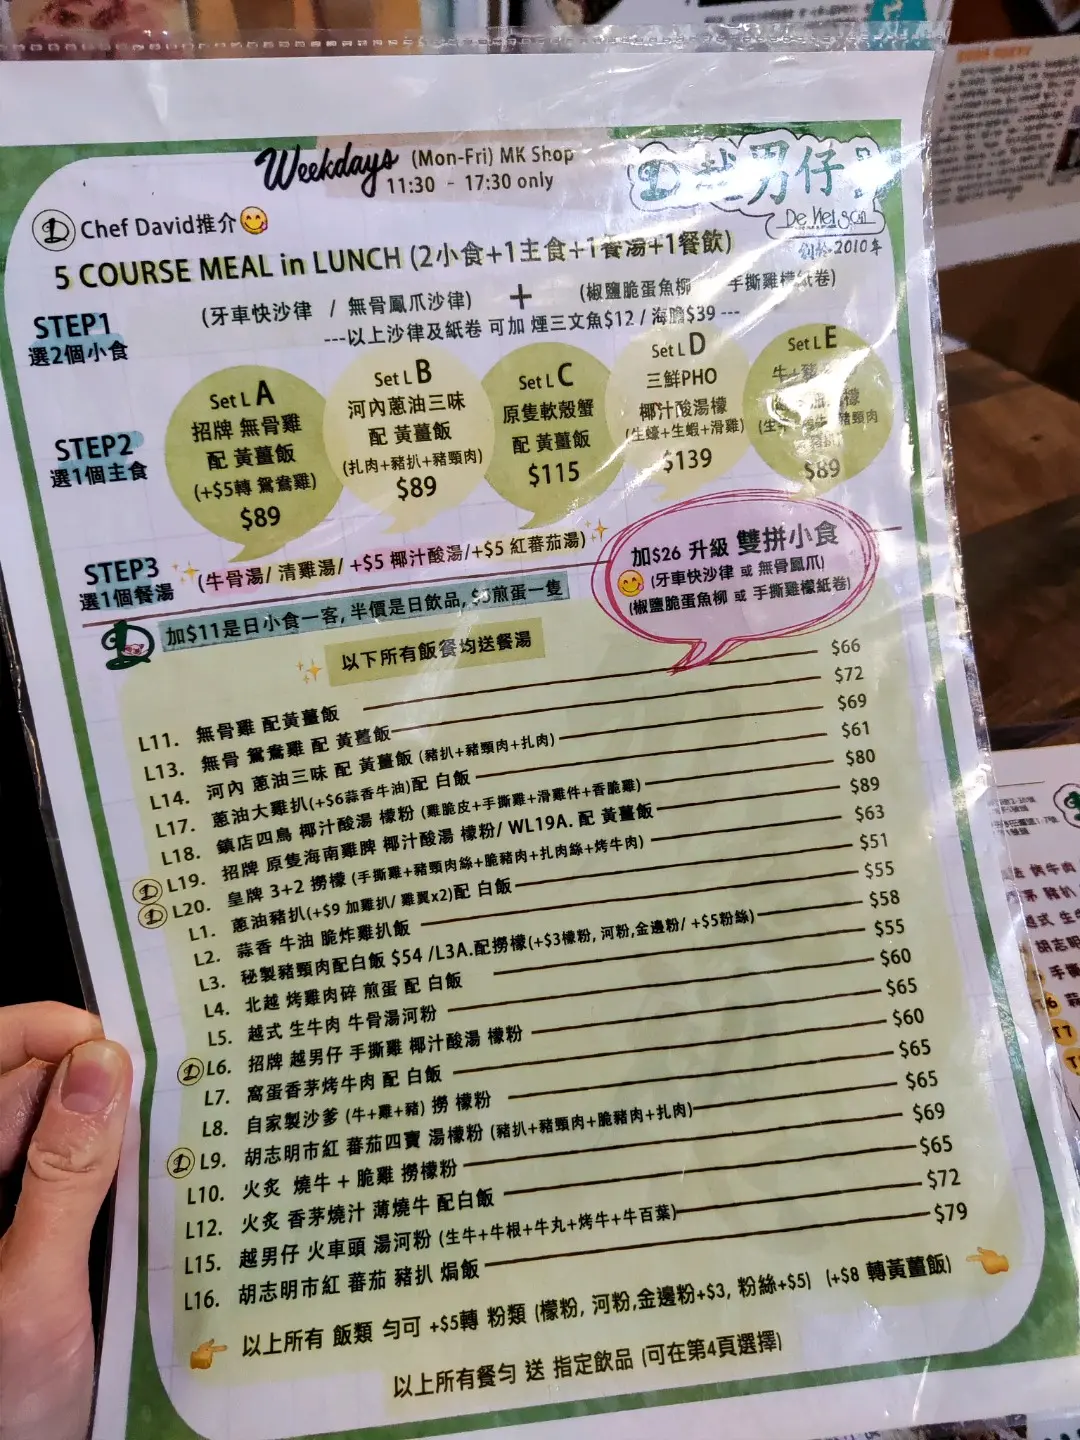 Weekdays (Mon-Fri) MK Shop
11:30 - 17:30 only
男仔
De Viet San
創於2010年
Chef David推介
5 COURSE MEAL in LUNCH (2小食+1主食+1餐湯+1餐飲)
STEP1
選2個小食
(牙車快沙律 / 無骨鳳爪沙律) + (椒鹽脆蛋魚柳 手撕雞檬紙卷)
---以上沙律及紙卷 可加 煙三文魚$12 / 海膽$39 ---
STEP2
選1個主食
Set L A
招牌 無骨雞
配 黃薑飯
(+$5轉 鴛鴦雞)
$89
Set L B
河內蔥油三味
配 黃薑飯
(扎肉+豬扒+豬頸肉)
$89
Set L C
原隻軟殼蟹
配 黃薑飯
$115
Set L D
三鮮PHO
椰汁酸湯檬
(生蠔+生蝦+滑雞)
$139
Set L E
豬頸肉
$89
STEP3
選1個餐湯
(牛骨湯/ 清雞湯/ +$5 椰汁酸湯/+$5 紅蕃茄湯)
加$11是日小食一客, 半價是日飲品, $5煎蛋一隻
加$26 升級 雙拼小食
(牙車快沙律 或 無骨鳳爪)
(椒鹽脆蛋魚柳 或 手撕雞檬紙卷)
以下所有飯餐均送餐湯
L11. 無骨雞 配黃薑飯 $66
L13. 無骨 鴛鴦雞 配 黃薑飯 $72
L14. 河內 蔥油三味 配 黃薑飯 (豬扒+豬頸肉+扎肉) $69
L17. 蔥油大雞扒(+$6蒜香牛油)配 白飯 $61
L18. 鎮店四鳥 椰汁酸湯 檬粉 (雞脆皮+手撕雞+滑雞件+香脆雞) $80
L19. 招牌 原隻海南雞脾 椰汁酸湯 檬粉/ WL19A. 配 黃薑飯 $89
L20. 皇牌 3+2 撈檬 (手撕雞+豬頸肉絲+脆豬肉+扎肉絲+烤牛肉) $63
L1. 蔥油豬扒(+$9 加雞扒/ 雞翼x2)配 白飯 $51
L2. 蒜香 牛油 脆炸雞扒飯 $55
L3. 秘製豬頸肉配白飯 $54 /L3A.配撈檬(+$3檬粉, 河粉,金邊粉/ +$5粉絲) $58
L4. 北越 烤雞肉碎 煎蛋 配 白飯 $55
L5. 越式 生牛肉 牛骨湯河粉 $60
L6. 招牌 越男仔 手撕雞 椰汁酸湯 檬粉 $65
L7. 窩蛋香茅烤牛肉 配 白飯 $60
L8. 自家製沙爹 (牛+雞+豬) 撈 檬粉 $65
L9. 胡志明市紅 蕃茄四寶 湯檬粉 (豬扒+豬頸肉+脆豬肉+扎肉) $65
L10. 火炙 燒牛 + 脆雞 撈檬粉 $69
L12. 火炙 香茅燒汁 薄燒牛 配白飯 $65
L15. 越男仔 火車頭 湯河粉 (生牛+牛根+牛丸+烤牛+牛百葉) $72
L16. 胡志明市紅 蕃茄 豬扒 焗飯 $79
以上所有 飯類 勻可 +$5轉 粉類 (檬粉, 河粉,金邊粉+$3, 粉絲+$5) (+$8 轉黃薑飯)
以上所有餐勻 送 指定飲品 (可在第4頁選擇)